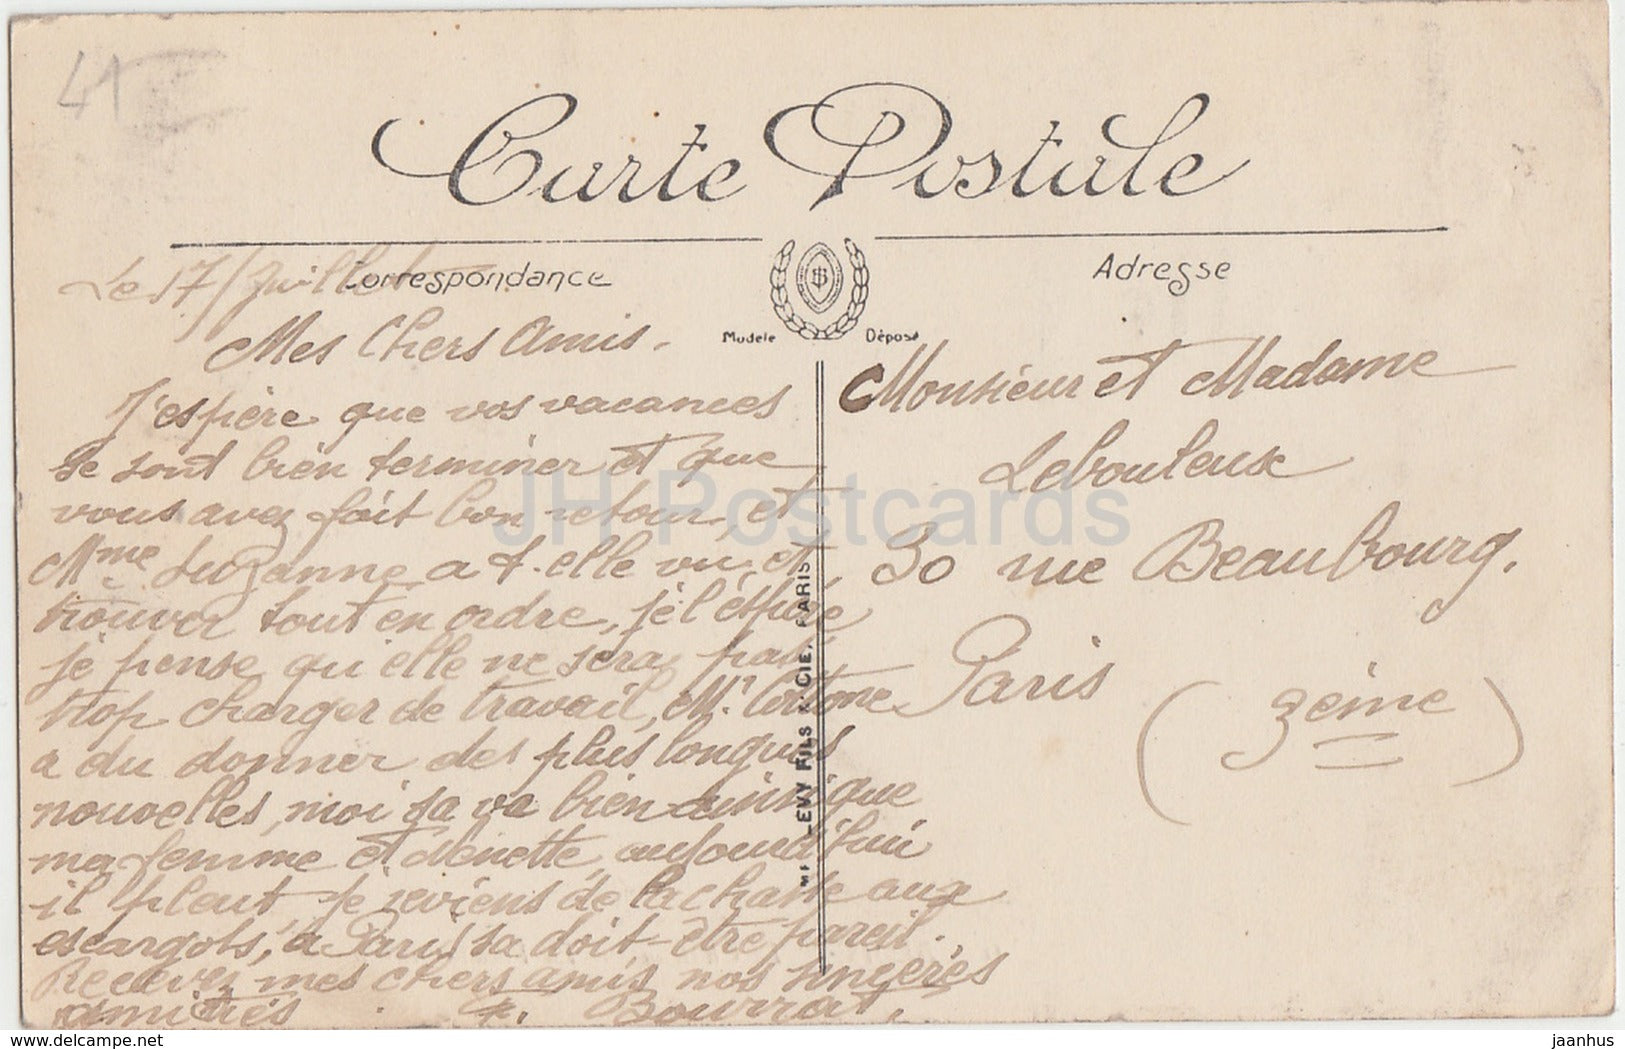 41
Carte Postale
Correspondance
Adresse
Modèle Déposé
Le 17/Juillet
Mes Chers Amis.
J'espère que vos vacances
se sont bien terminer et que
vous avez fait bon retour, et
Mme Suzanne a t. elle vu et
trouver tout en ordre, je l'éspère
je pense qu'elle ne sera pas
trop charger de travail, Mr.
a du donner des plus longues
nouvelles, moi sa va bien ainsi que
ma femme et aujourd'hui
il pleut, je reviens de la chasse aux
escargots, a Paris sa doit-être pareil.
Recevez mes chers amis nos sincéres
amitiés F. Bourrat.
LEVY FILS & CIE. PARIS
Monsieur et Madame
Lebouleux
30 rue Beaubourg.
Paris
(3ème)
JH Postcards
delcampe.net
jaanhus